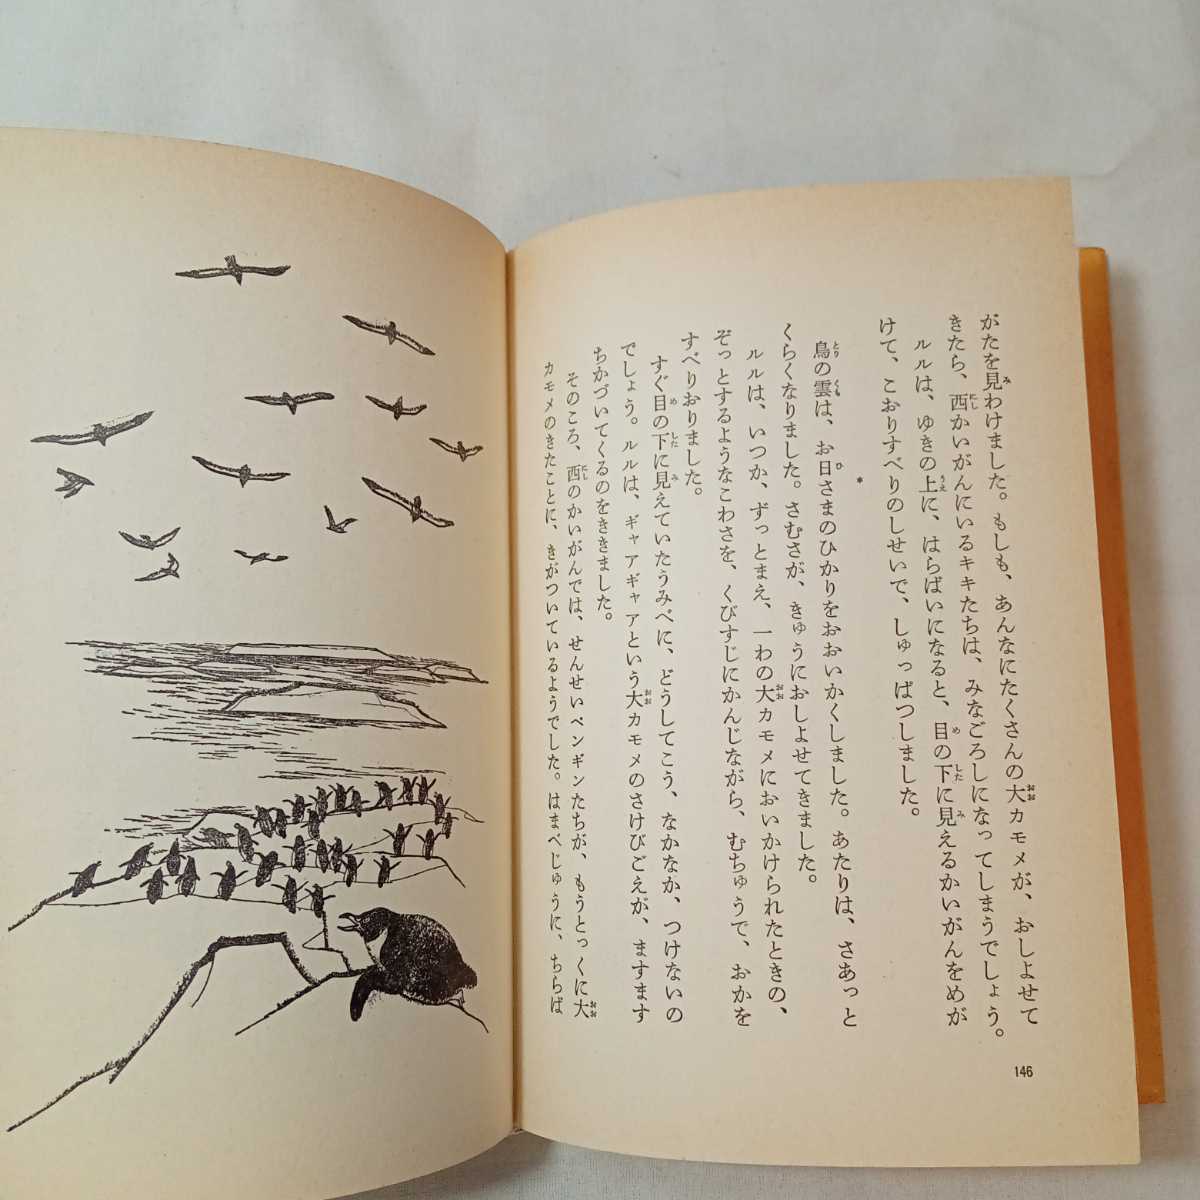 がたを見わけました。もしも、あんなにたくさんの大カモメが、おしよせて
きたら、西かいがんにいるキキたちは、みなごろしになってしまうでしょう。
ルルは、ゆきの上に、はらばいになると、目の下に見えるかいがんをめが
けて、こおりすべりのしせいで、しゅっぱつしました。
*
鳥の雲は、お日さまのひかりをおおいかくしました。あたりは、さあっと
くらくなりました。さむさが、きゅうにおしよせてきました。
ルルは、いつか、ずっとまえ、一わの大カモメにおいかけられたときの、
ぞっとするようなこわさを、くびすじにかんじながら、むちゅうで、おかを
すべりおりました。
すぐ目の下に見えていたうみべに、どうしてこう、なかなか、つけないの
でしょう。ルルは、ギャアギャアという大カモメのさけびごえが、ますます
ちかづいてくるのをききました。
そのころ、西のかいがんでは、せんせいペンギンたちが、もうとっくに大
カモメのきたことに、きがついているようでした。はまべじゅうに、ちらば
146